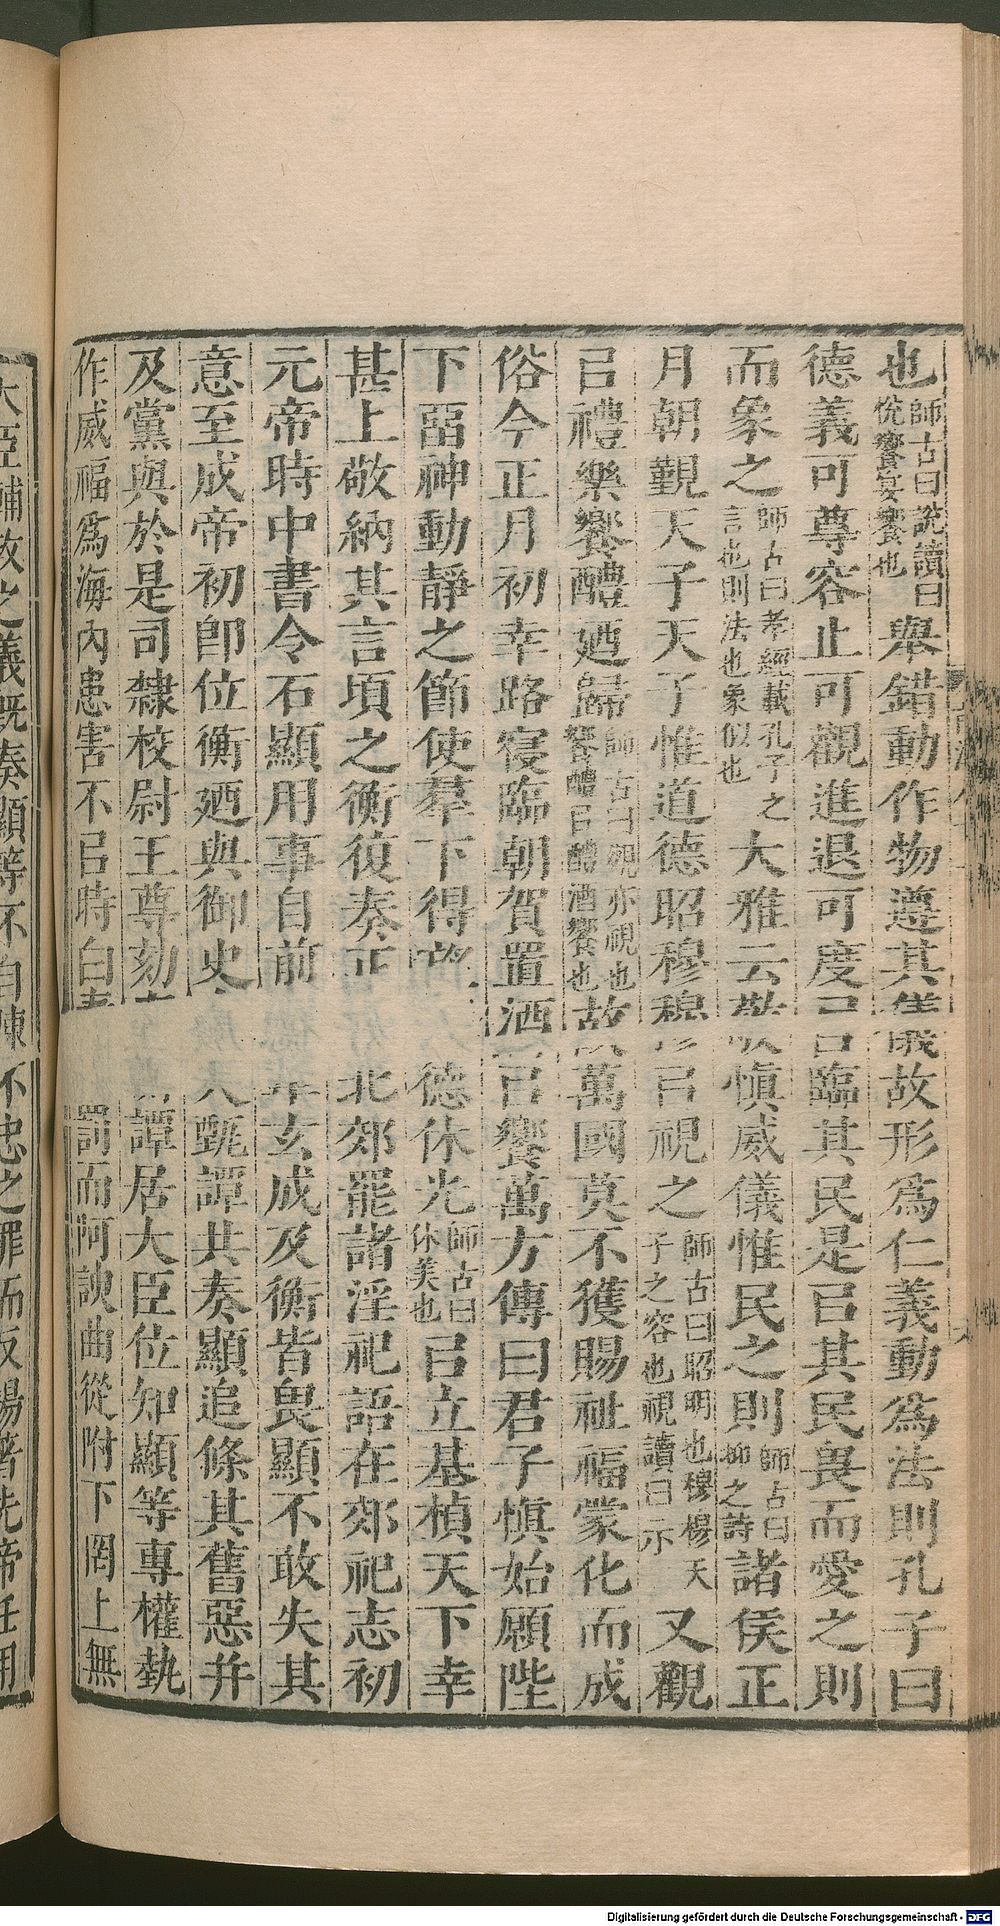 也師古曰說讀曰悅饗宴饗也舉錯動作物遵其儀故形爲仁義動爲法則孔子曰
德義可尊容止可觀進退可度㠯臨其民是㠯其民畏而愛之則
而象之師古曰孝經載孔子之言也則法也象似也大雅云敬愼威儀惟民之則師古曰抑之詩諸侯正
月朝覲天子天子惟道德昭穆穆㠯視之師古曰昭明也穆穆天子之容也視讀曰示又觀
㠯禮樂饗醴廼歸師古曰視亦視也饗醴㠯醴酒饗也故萬國莫不獲賜祉福蒙化而成
俗今正月初幸路寑臨朝賀置酒㠯饗萬方傳曰君子愼始願陛
下畱神動靜之節使羣下得望德休光師古曰休美也㠯立基楨天下幸
甚上敬納其言頃之衡復奏正北郊罷諸淫祀語在郊祀志初
元帝時中書令石顯用事自前年玄成及衡皆畏顯不敢失其
意至成帝初卽位衡廼與御史大甄譚共奏顯追條其舊惡并
及黨與於是司隸校尉王尊劾譚居大臣位知顯等專權埶
作威福爲海內患害不㠯時白罰而阿諛曲從附下罔上無
大臣輔政之義旣奏顯等不自陳不忠之罪而反揚著先帝任用
Digitalisierung gefördert durch die Deutsche Forschungsgemeinschaft - DFG